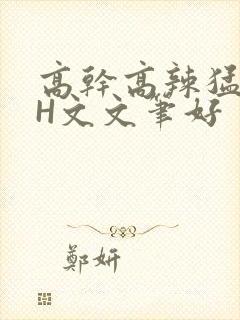 高幹高辣猛
H文文筆好
鄭妍